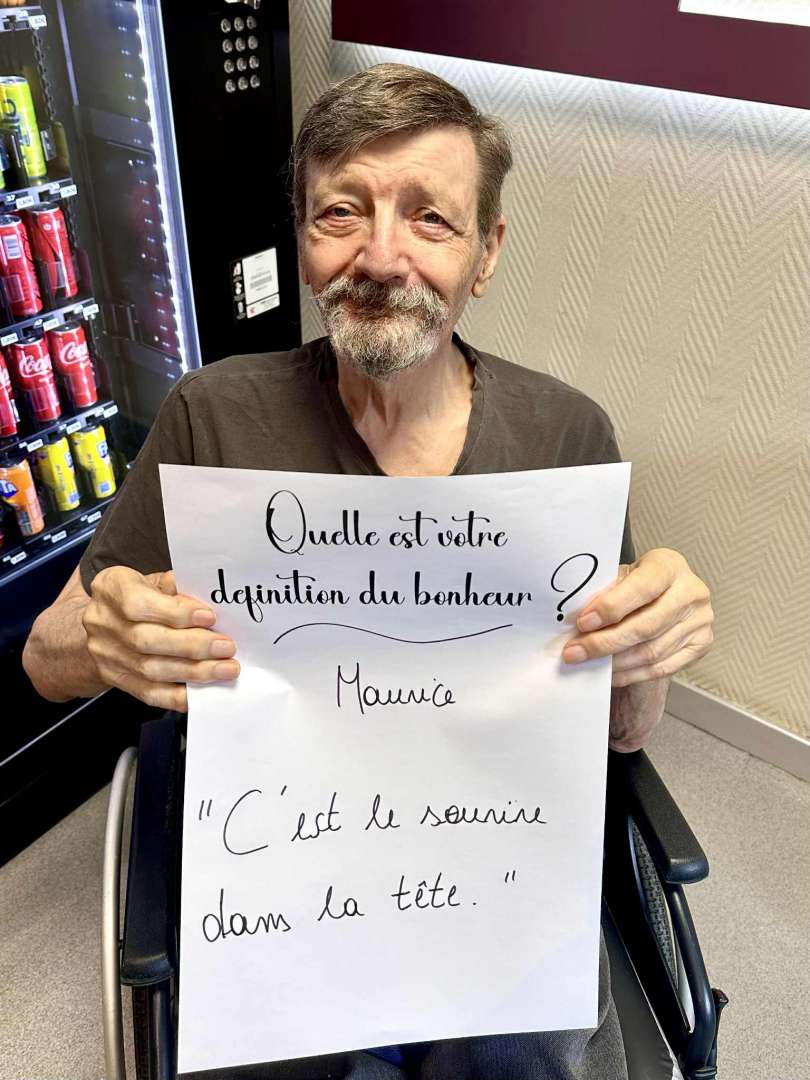 Quelle est votre
definition du bonheur ?
Maurice
"C'est le sourire
dans la tête."